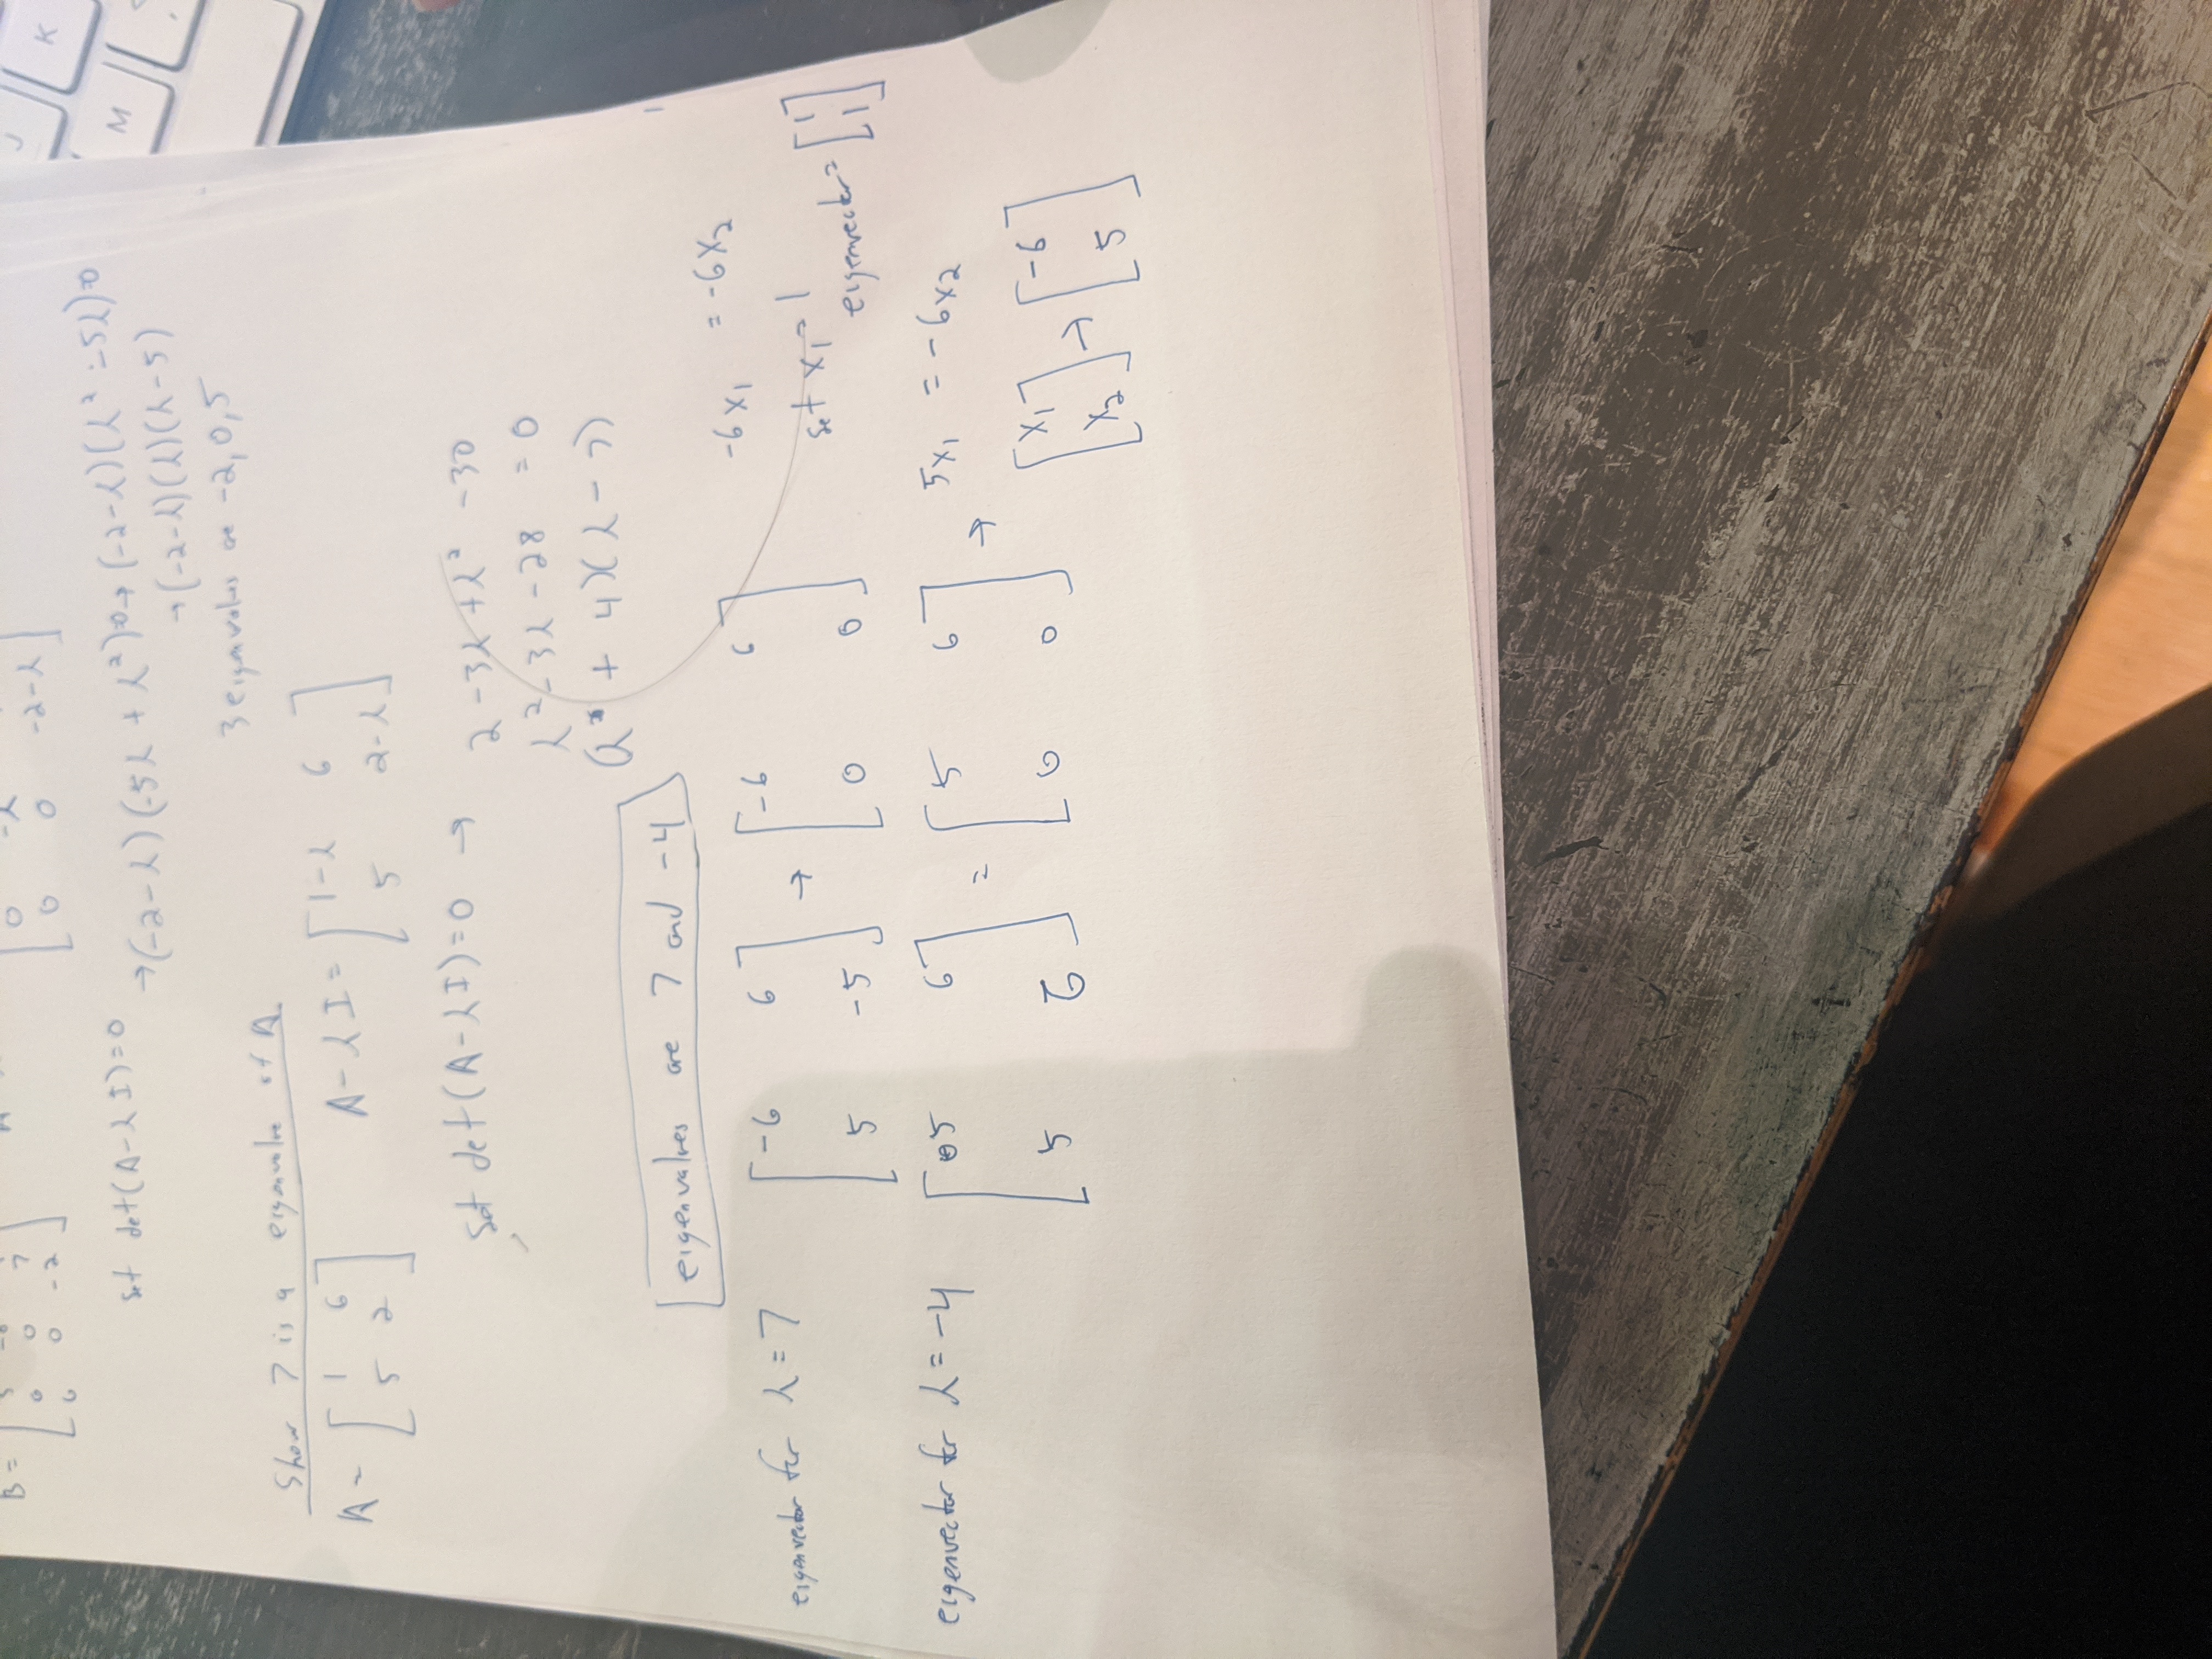 B = [ 5 -8
0 0 7
0 0 -2 ]
[ 0 -λ
0 0 -2-λ ]
set det(A-λI)=0 →(-2-λ)(-5λ + λ²)=0→ (-2-λ)(λ² -5λ)=0
→(-2-λ)(λ)(λ-5)
3 eigenvalues are -2,0,5
Show 7 is a eigenvalue of A.
A = [ 1 6 A-λI = [ 1-λ 6
5 2 ] 5 2-λ ]
set det(A-λI)=0 → 2 -3λ +λ² -30
λ² - 3λ - 28 = 0
(λ + 4)(λ - 7)
eigenvalues are 7 and -4
eigenvector for λ=7 [ -6 6 → [ -6 6 -6x₁ = -6x₂
5 -5 ] 0 0 ] set x₁=1
eigenvector= [ 1
1 ]
eigenvector for λ=-4 [ 5 6 = [ 5 6 → 5x₁ = -6x₂
5 6 ] 0 0 ]
[ x₁ → [ -6
x₂ ] 5 ]
J
K
M